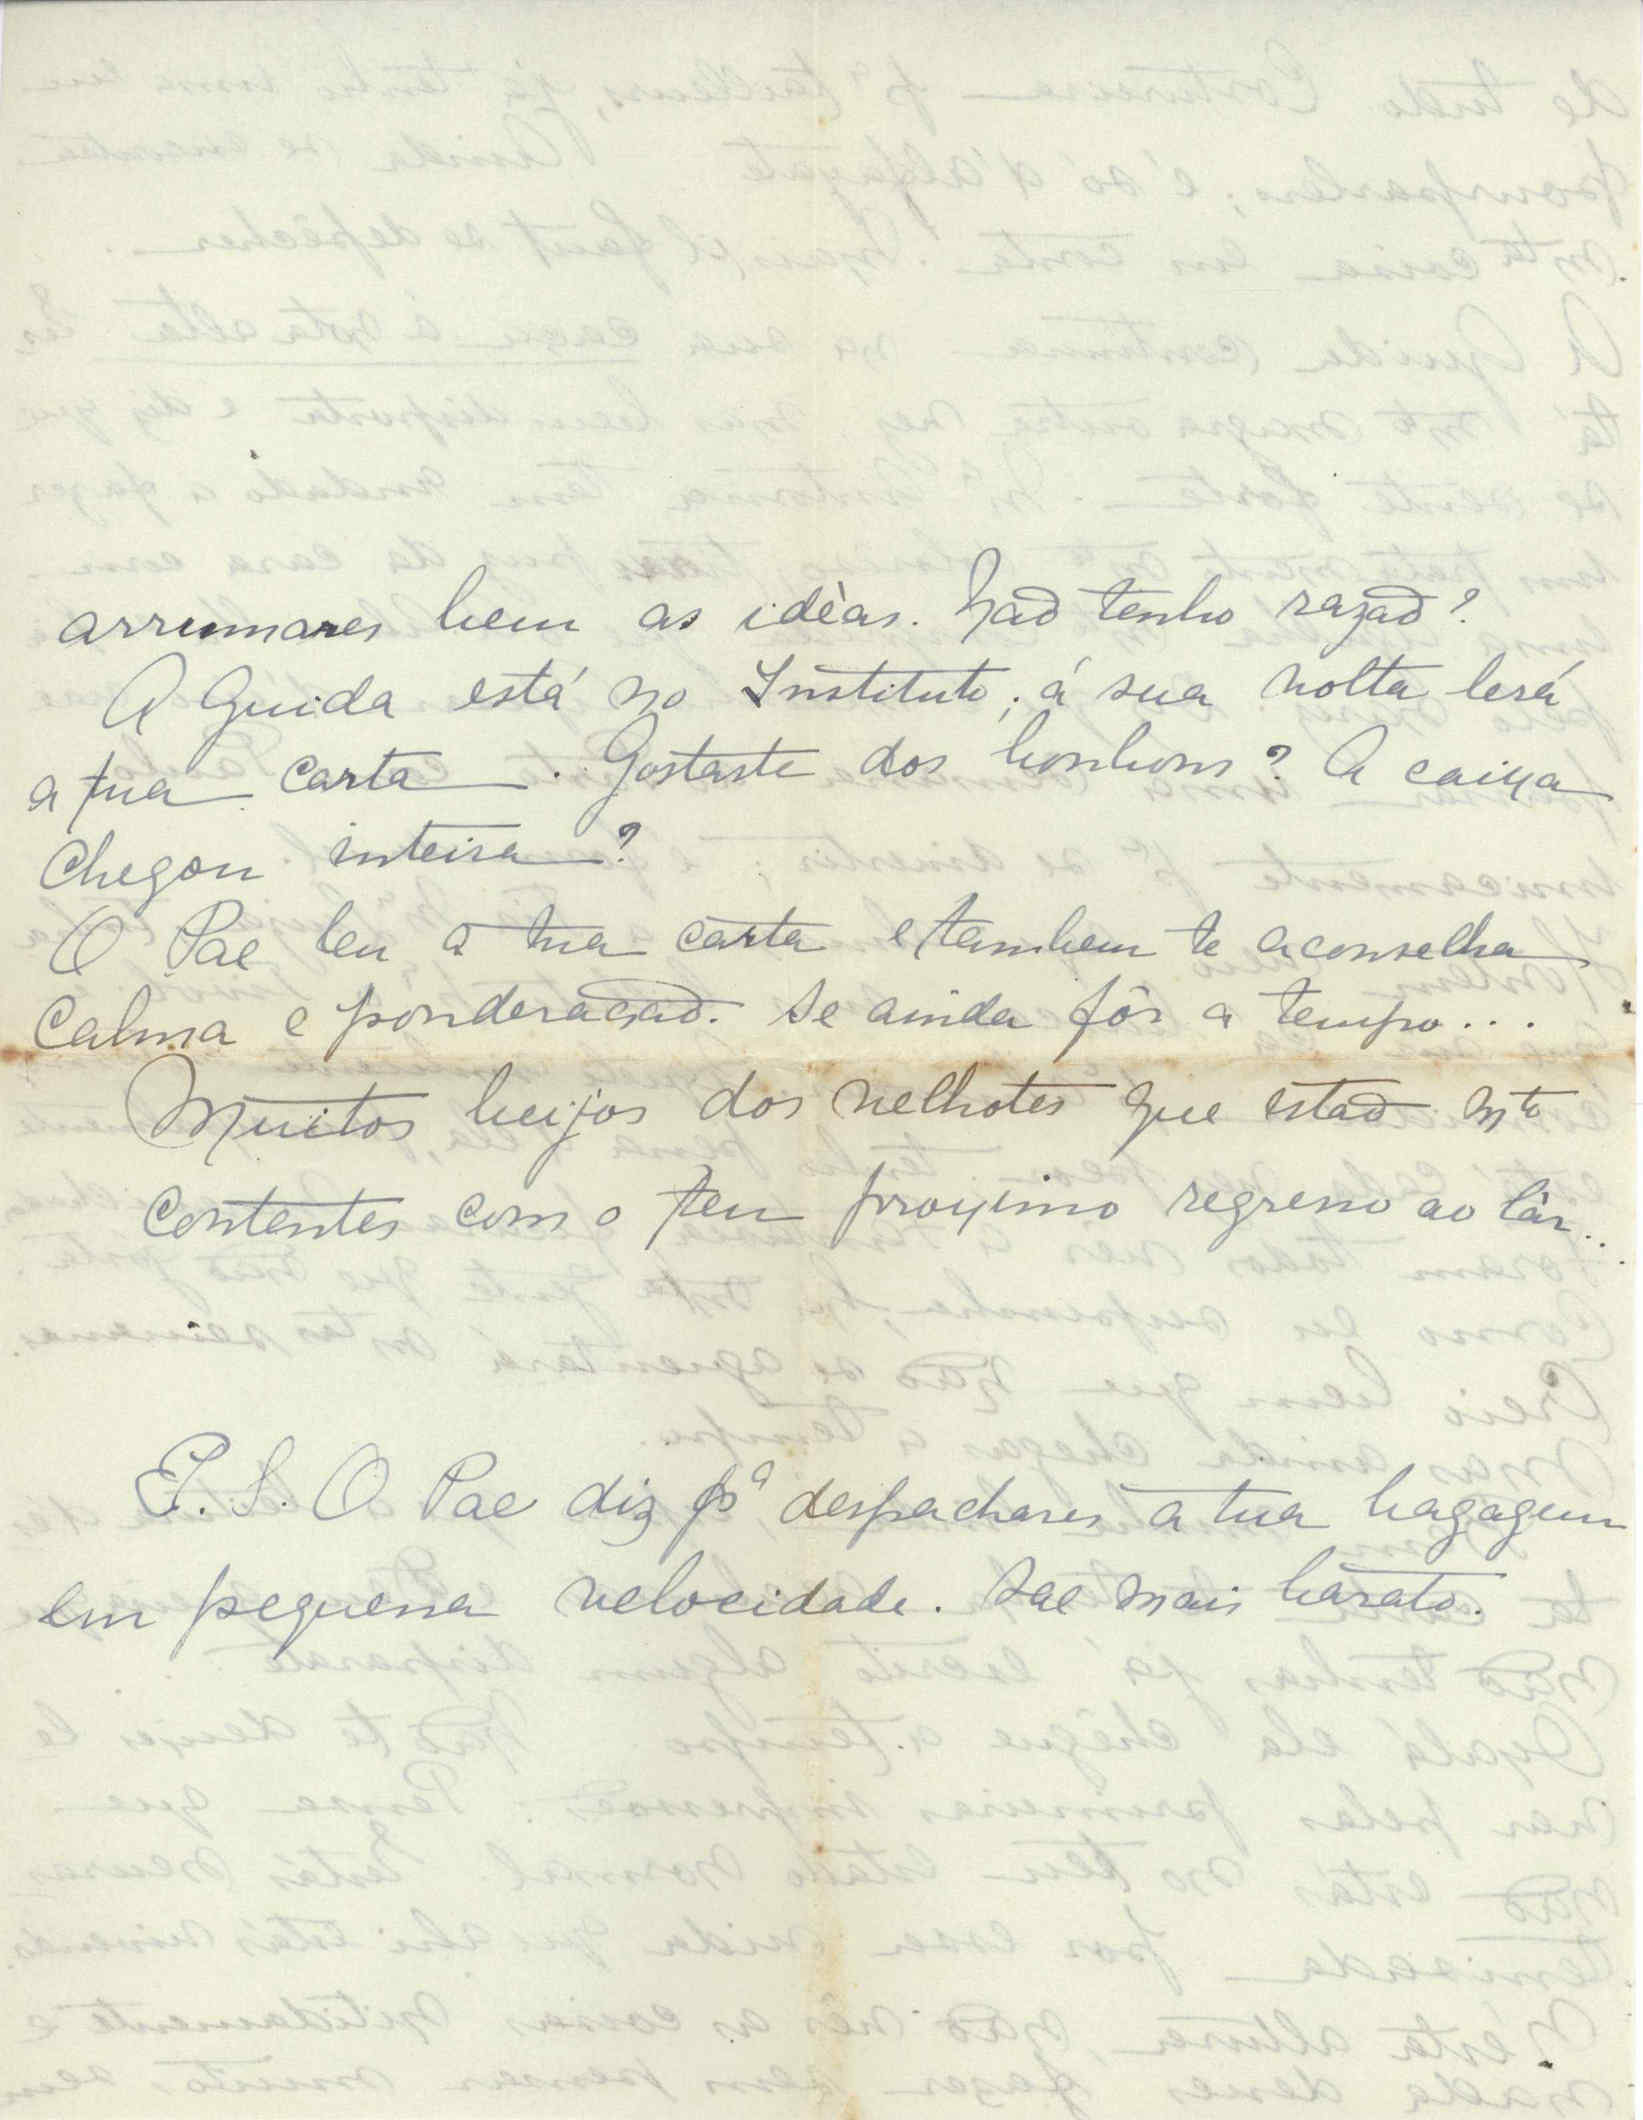 arrumares bem as idèas. Não tenho razaõ?
A Guida está no Instituto; á sua volta lerá
a tua carta. Gostaste dos bonbons? A caixa
chegou inteira?
O Pae leu a tua carta e tambem te aconselha
calma e ponderaçaõ. Se ainda fôr a tempo...
Muitos beijos dos velhotes que estaõ mto
contentes com o teu proximo regresso ao lár...
P.S. O Pae diz pª despachares a tua bagagem
em pequena velocidade. Sae mais barato.